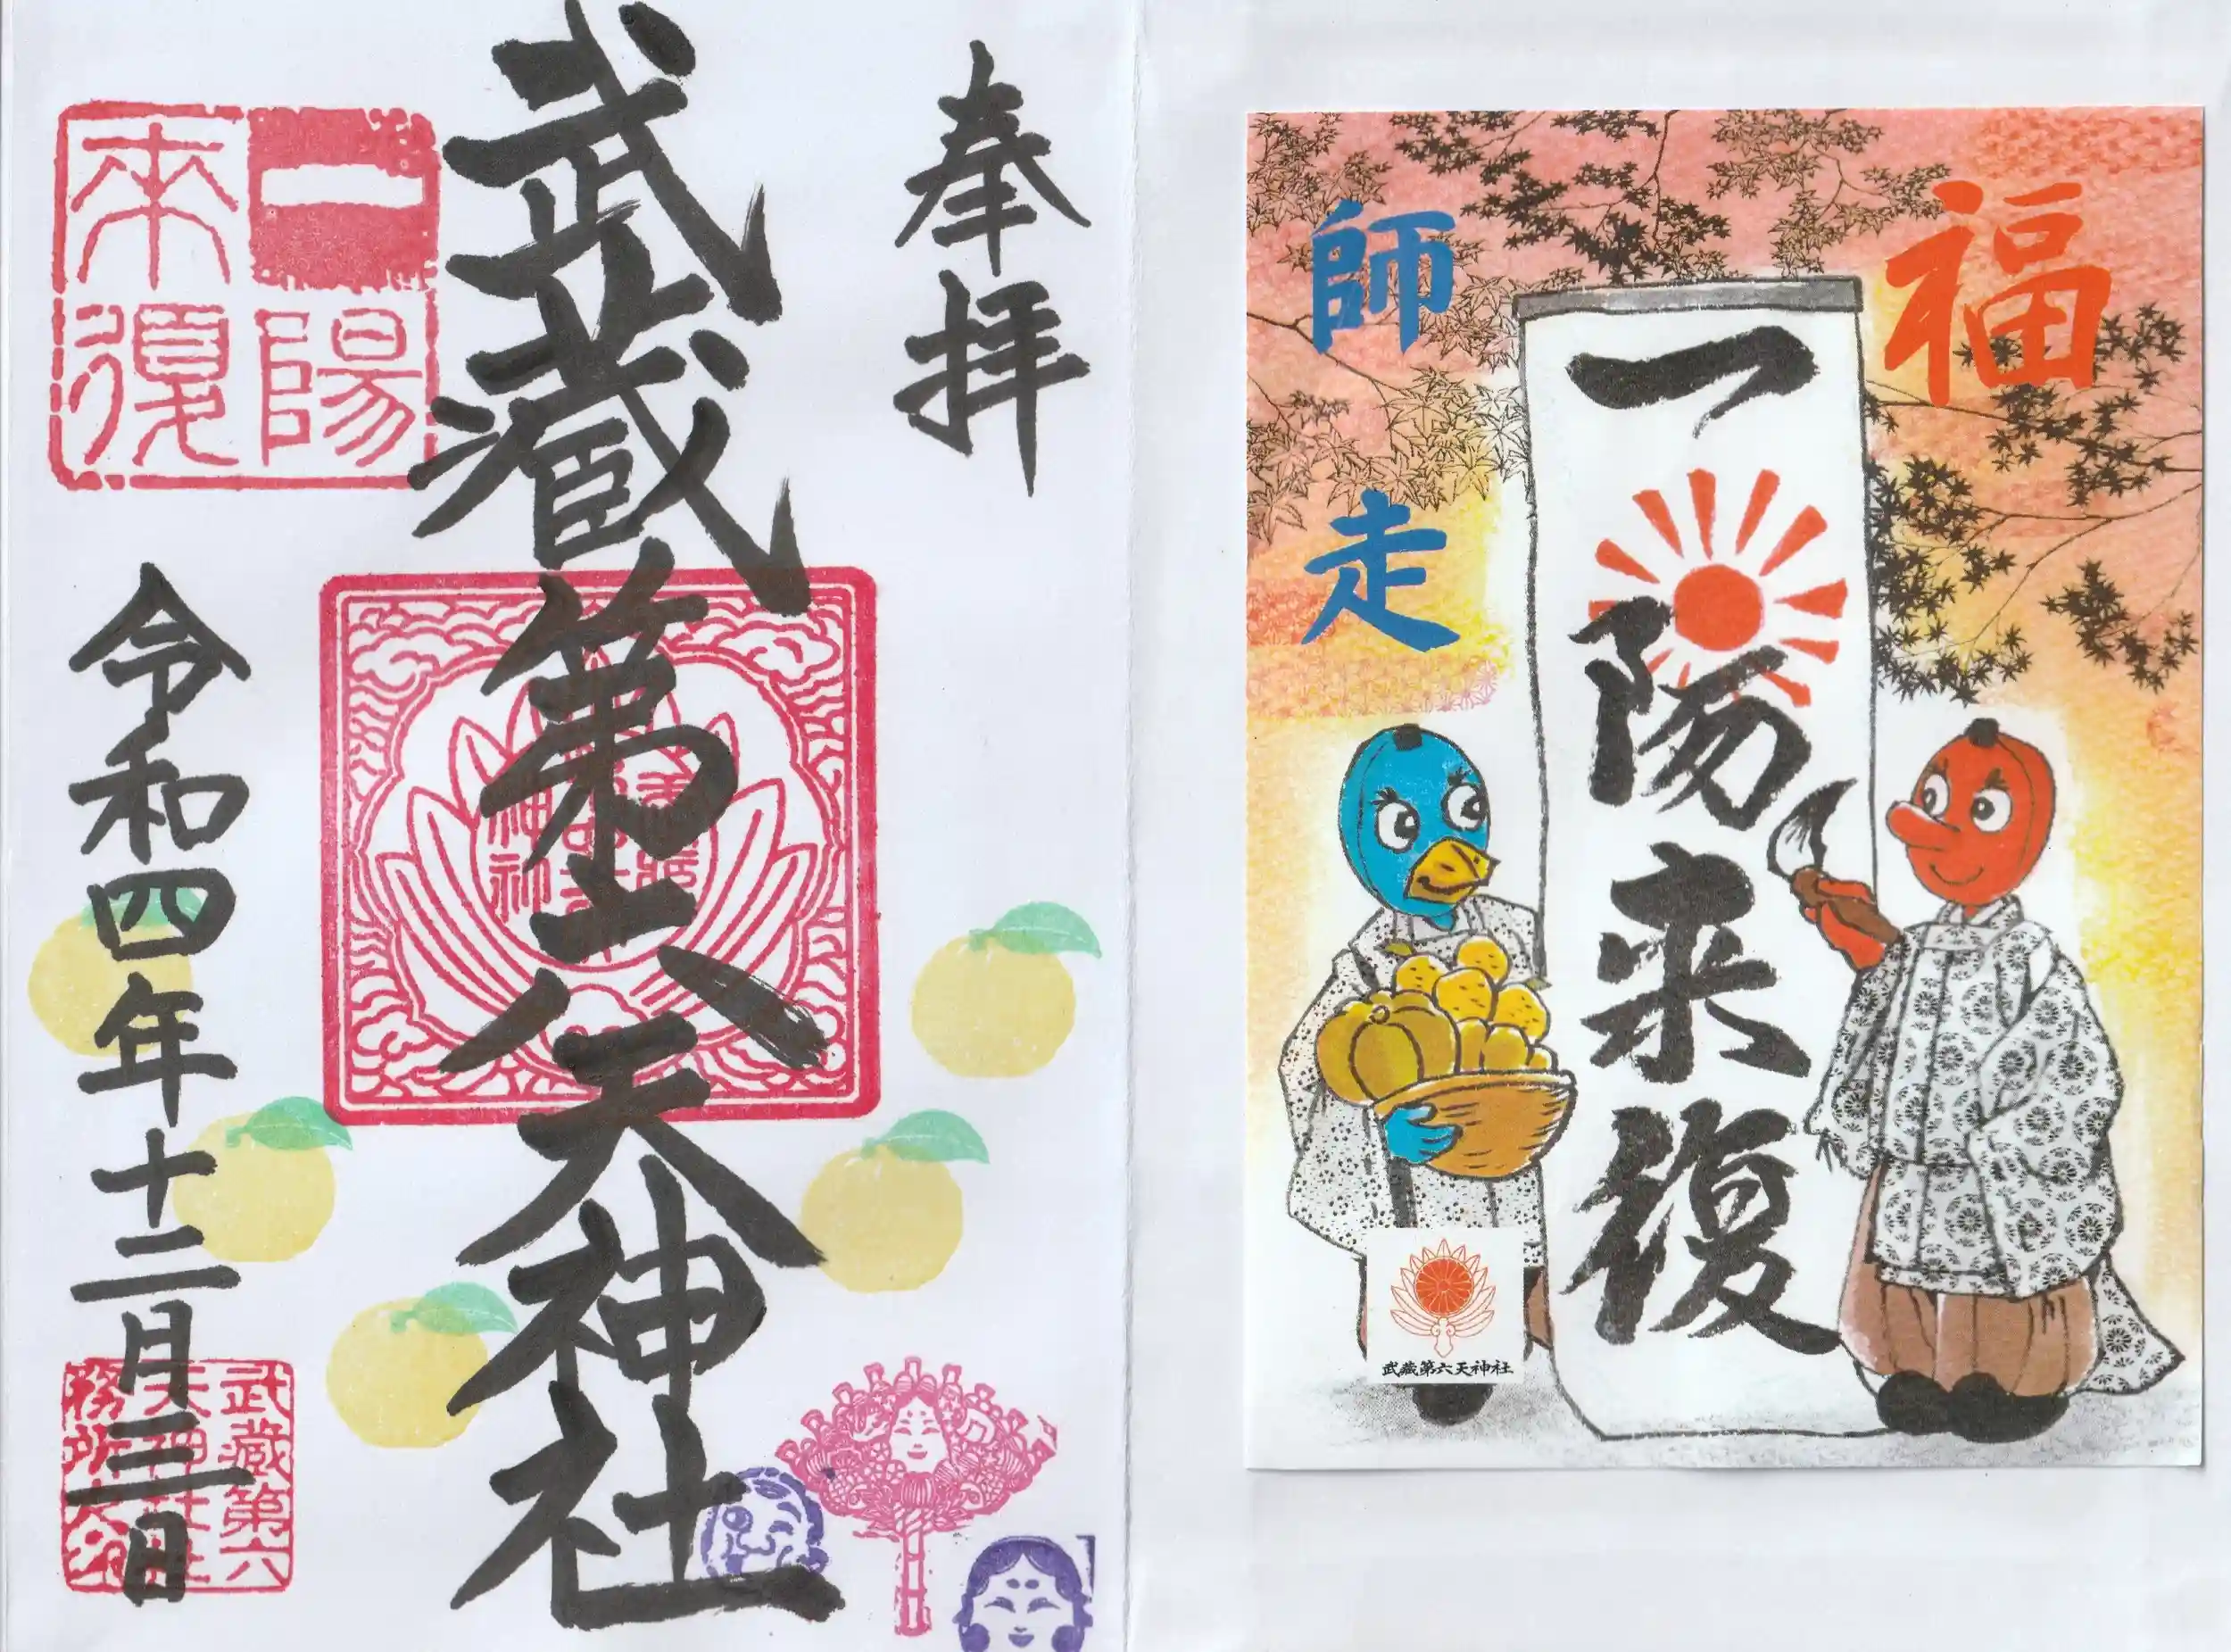 奉拝
武蔵第六天神社
一陽来復
令和四年十二月三日
武蔵第六天神社社務所之印
福
一陽来復
師走
武蔵第六天神社